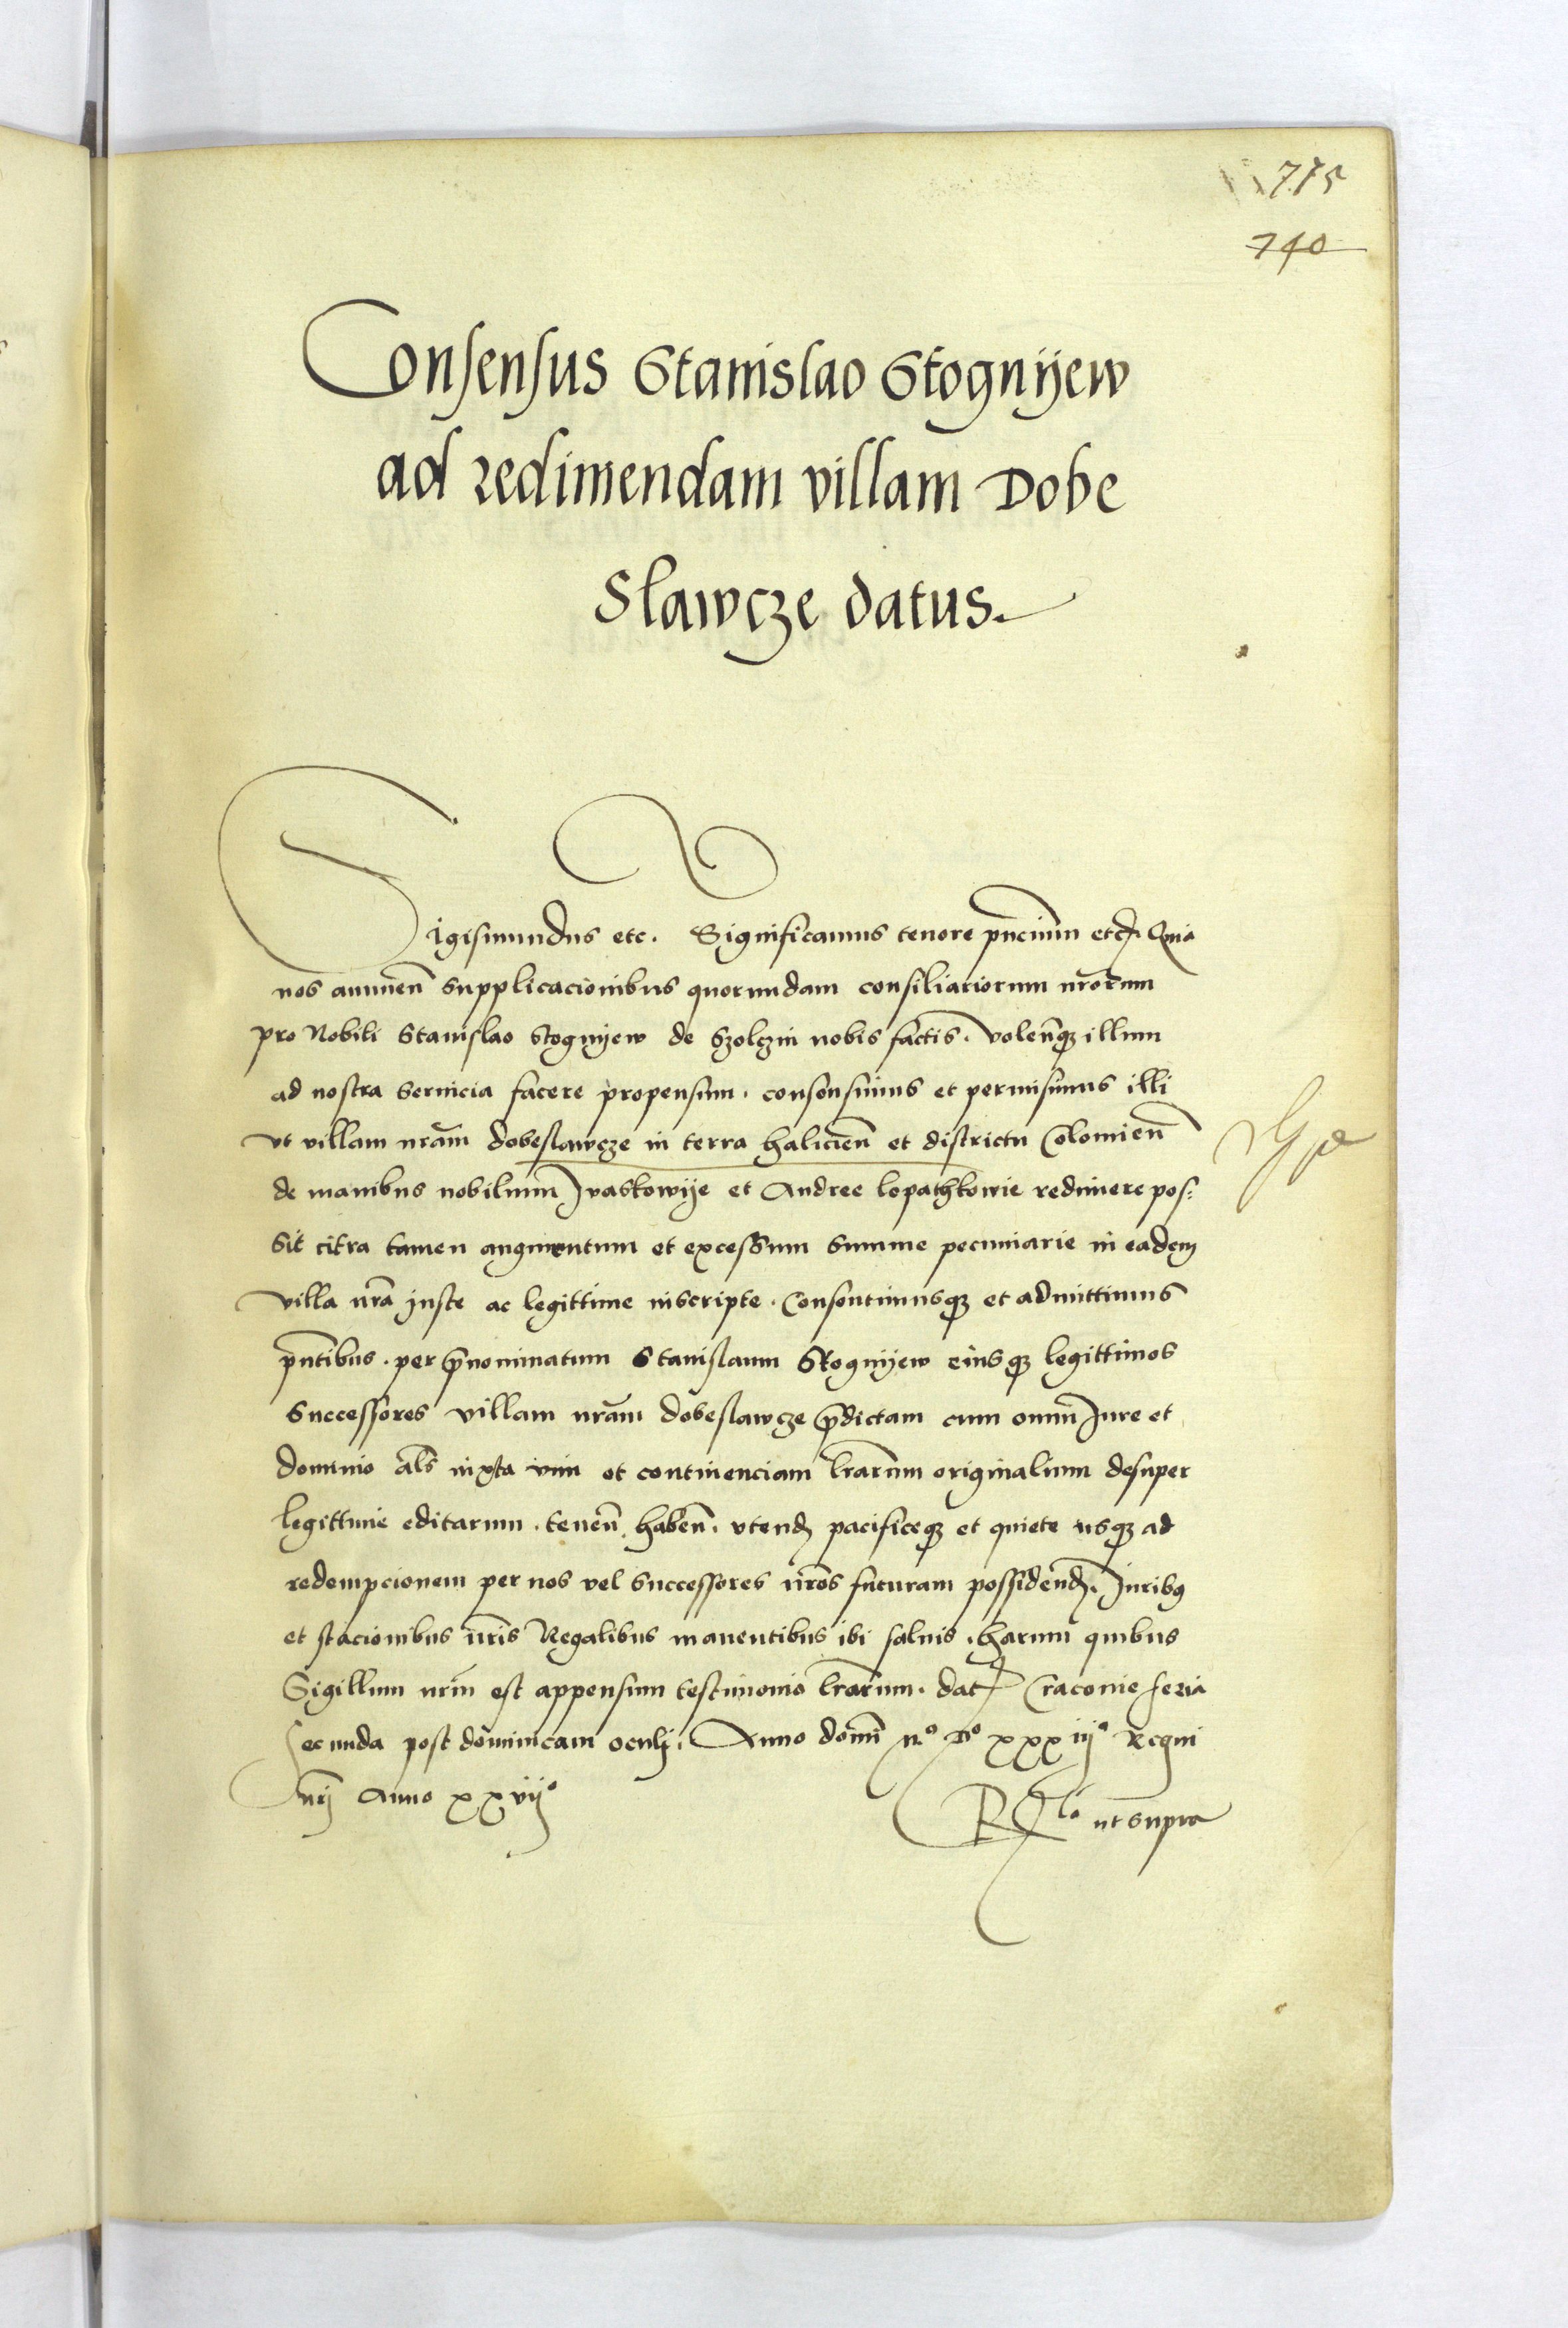 775
740
Consensus Stanislao Stognyew
ad redimendam villam Dobe
Slawcze datus.
Sigismundus etc. Significamus tenore pñcium etc. Quia
nos annueñ supplicacionibus quorundam consiliariorum nrorum
pro Nobili Stanislao Stognyew de Szolczin nobis factis. volenqz illum
ad nostra seruicia facere propensum. consensimus et permisimus illi
vt villam nram dobeslawcze in terra halicieñ et districtu Colomieñ
de manibus nobilium Ivaskowije et Andree lopathkowie redimere pos:
sit citra tamen augmentum et excessum summe pecuniarie in eadem
villa nra juste ac legittime inscripte. Consentimusqz et admittimus
pñtibus. per p̄nominatum Stanislaum Stognyew eiusqz legittimos
successores villam nram dobeslawcze p̄dictam cum omni Jure et
dominio als iuxta vim et continenciam lrarum originalium desuper
legittime editarum. teneñ. habeñ. vtend pacificeqz et quiete usqz ad
redempcionem per nos vel successores nros futuram possidend. Juribus
et stacionibus nris Regalibus manentibus ibi saluis. harum quibus
Sigillum nrm est appensum testimonio lrarum. dat Cracouie feria
secunda post dominicam oculj. Anno domi Mº Dº xxxiijº Regni
nrj Anno xxvijº
Rlo ut supra